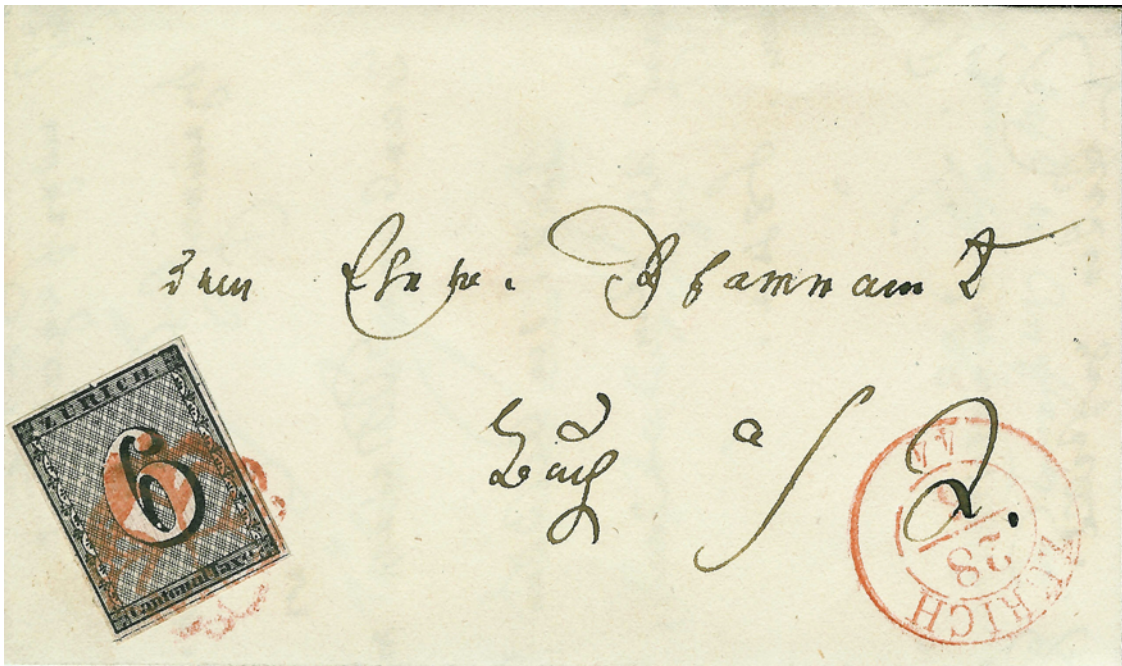 Dem Pfarramt
Buch a/J.
ZÜRICH.
6
Cantonal-Taxe.
ZÜRICH
28